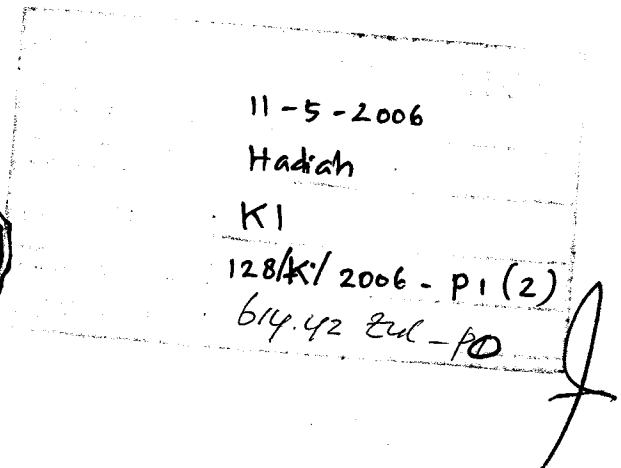 11-5-2006
Hadiah
KI
128/K/2006-P1(2)
614.42 Zul-p